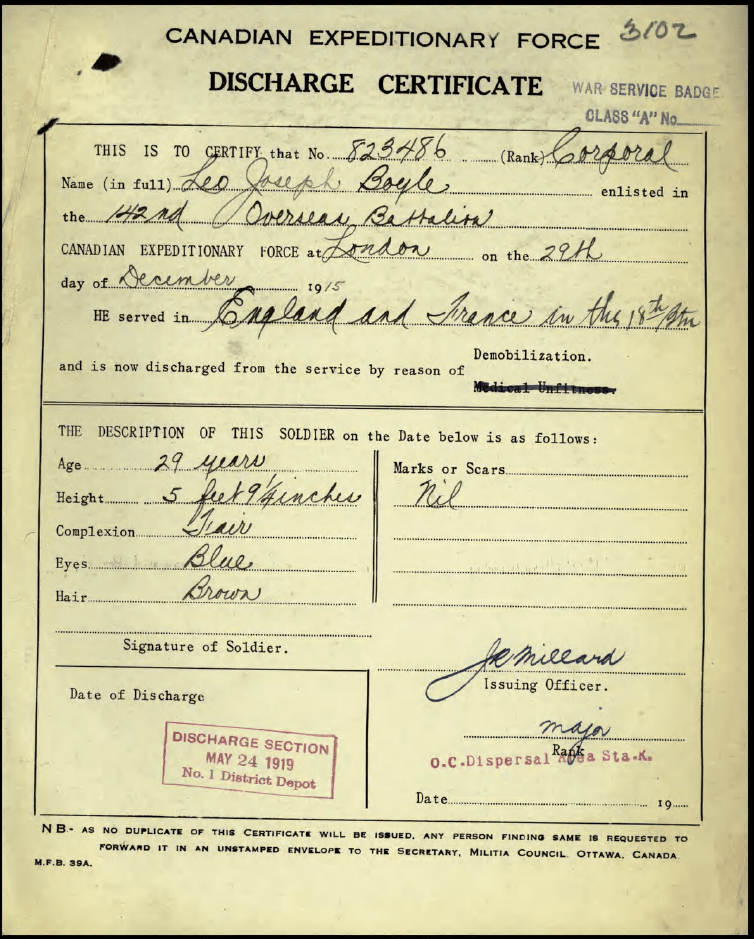 CANADIAN EXPEDITIONARY FORCE 3102
DISCHARGE CERTIFICATE
WAR SERVICE BADGE
CLASS "A" No.
THIS IS TO CERTIFY that No. 823486 (Rank) Corporal
Name (in full) Leo Joseph Boyle enlisted in
the 142nd Overseas Battalion
CANADIAN EXPEDITIONARY FORCE at London on the 29th
day of December 1915
HE served in England and France in the 18th Btn
Demobilization.
and is now discharged from the service by reason of
Medical Unfitness.
THE DESCRIPTION OF THIS SOLDIER on the Date below is as follows:
Age 29 years
Height 5 feet 9 1/4 inches
Complexion Fair
Eyes Blue
Hair Brown
Marks or Scars
Nil
Signature of Soldier.
JR Millard
Issuing Officer.
Major
Rank
O.C. Dispersal Area Sta. K.
Date of Discharge
DISCHARGE SECTION
MAY 24 1919
No. 1 District Depot
Date 19
NB.- AS NO DUPLICATE OF THIS CERTIFICATE WILL BE ISSUED, ANY PERSON FINDING SAME IS REQUESTED TO
FORWARD IT IN AN UNSTAMPED ENVELOPE TO THE SECRETARY, MILITIA COUNCIL. OTTAWA, CANADA
M.F.B. 39A.